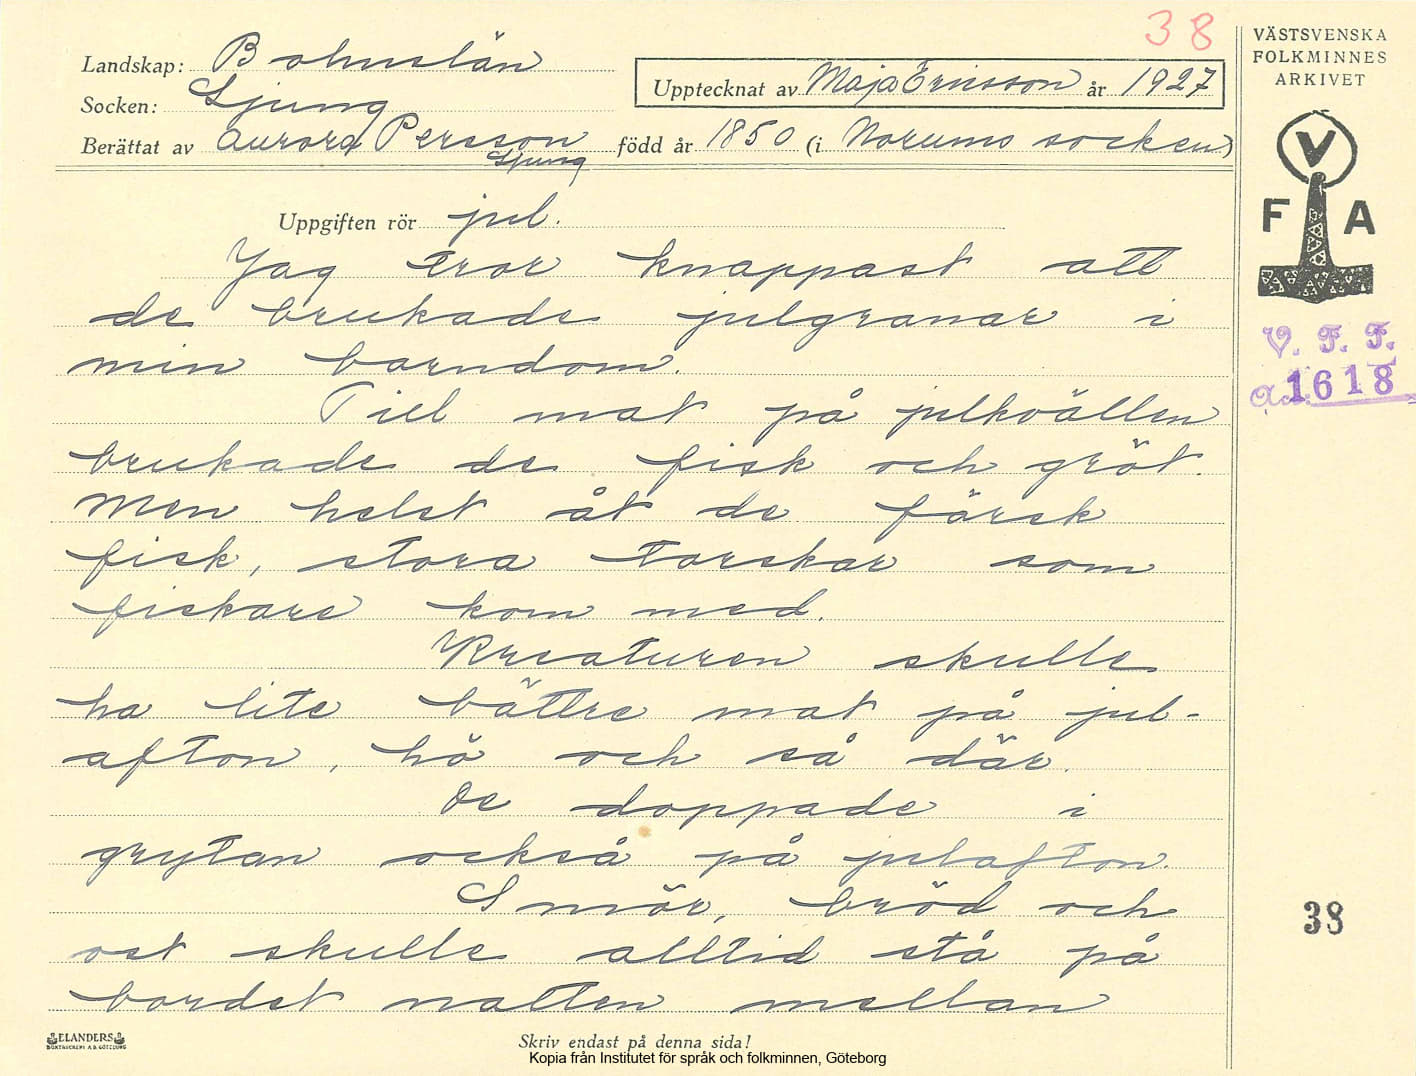 38
Landskap: Bohuslän
Socken: Ljung
Upptecknat av Maja Ericsson år 1927
Berättat av Aurora Persson född år 1850 (i Norums socken)
Ljung
VÄSTSVENSKA
FOLKMINNES
ARKIVET
V
F A
V. F. F.
1618
Uppgiften rör jul.
Jag tror knappast att
de brukade julgranar i
min barndom.
Till mat på julkvällen
brukade de fisk och gröt.
Men helst åt de färsk
fisk, stora torskar som
fiskare kom med.
Kreaturen skulle
ha lite bättre mat på jul-
afton, hö och så där.
De doppade i
grytan också på julafton.
Smör, bröd och
ost skulle alltid stå på
bordet natten mellan
38
ELANDERS
BOKTRYCKERI A.B. GÖTEBORG
Skriv endast på denna sida!
Kopia från Institutet för språk och folkminnen, Göteborg